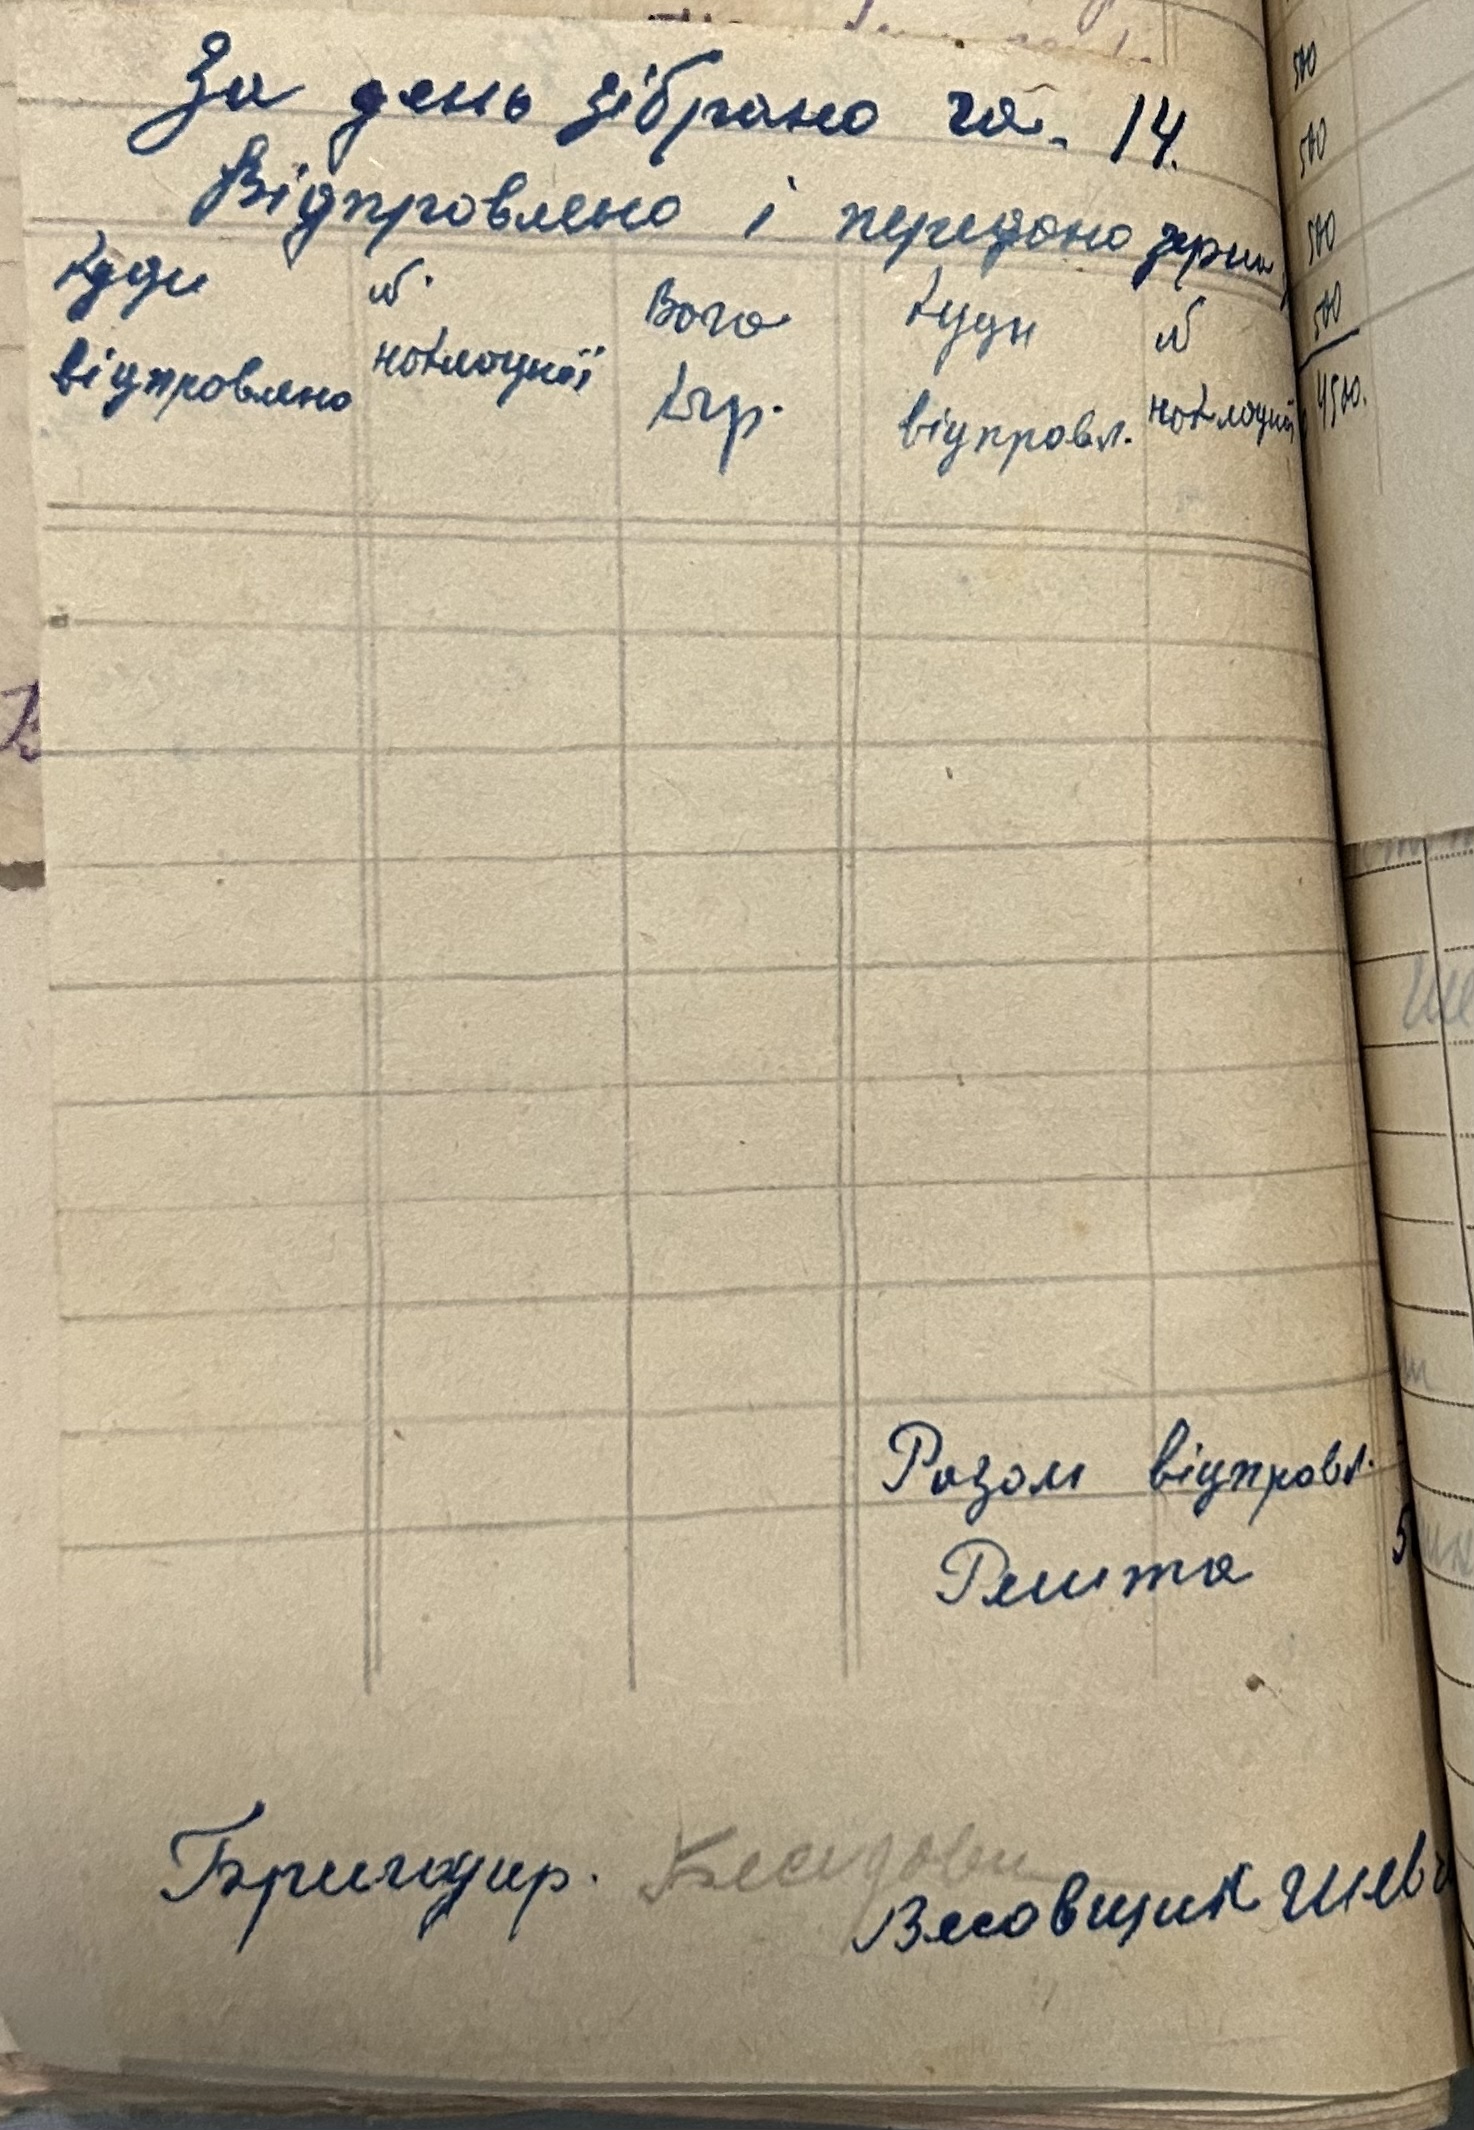 За день зібрано га. 14.
Відправлено і передано зерна
Куди № Вага Куди №
відправлено накладної кгр. відправл. накладної
500
500
500
500
4500.
Разом відправл.
Решта
Бригадир.
Весовщик Шевч